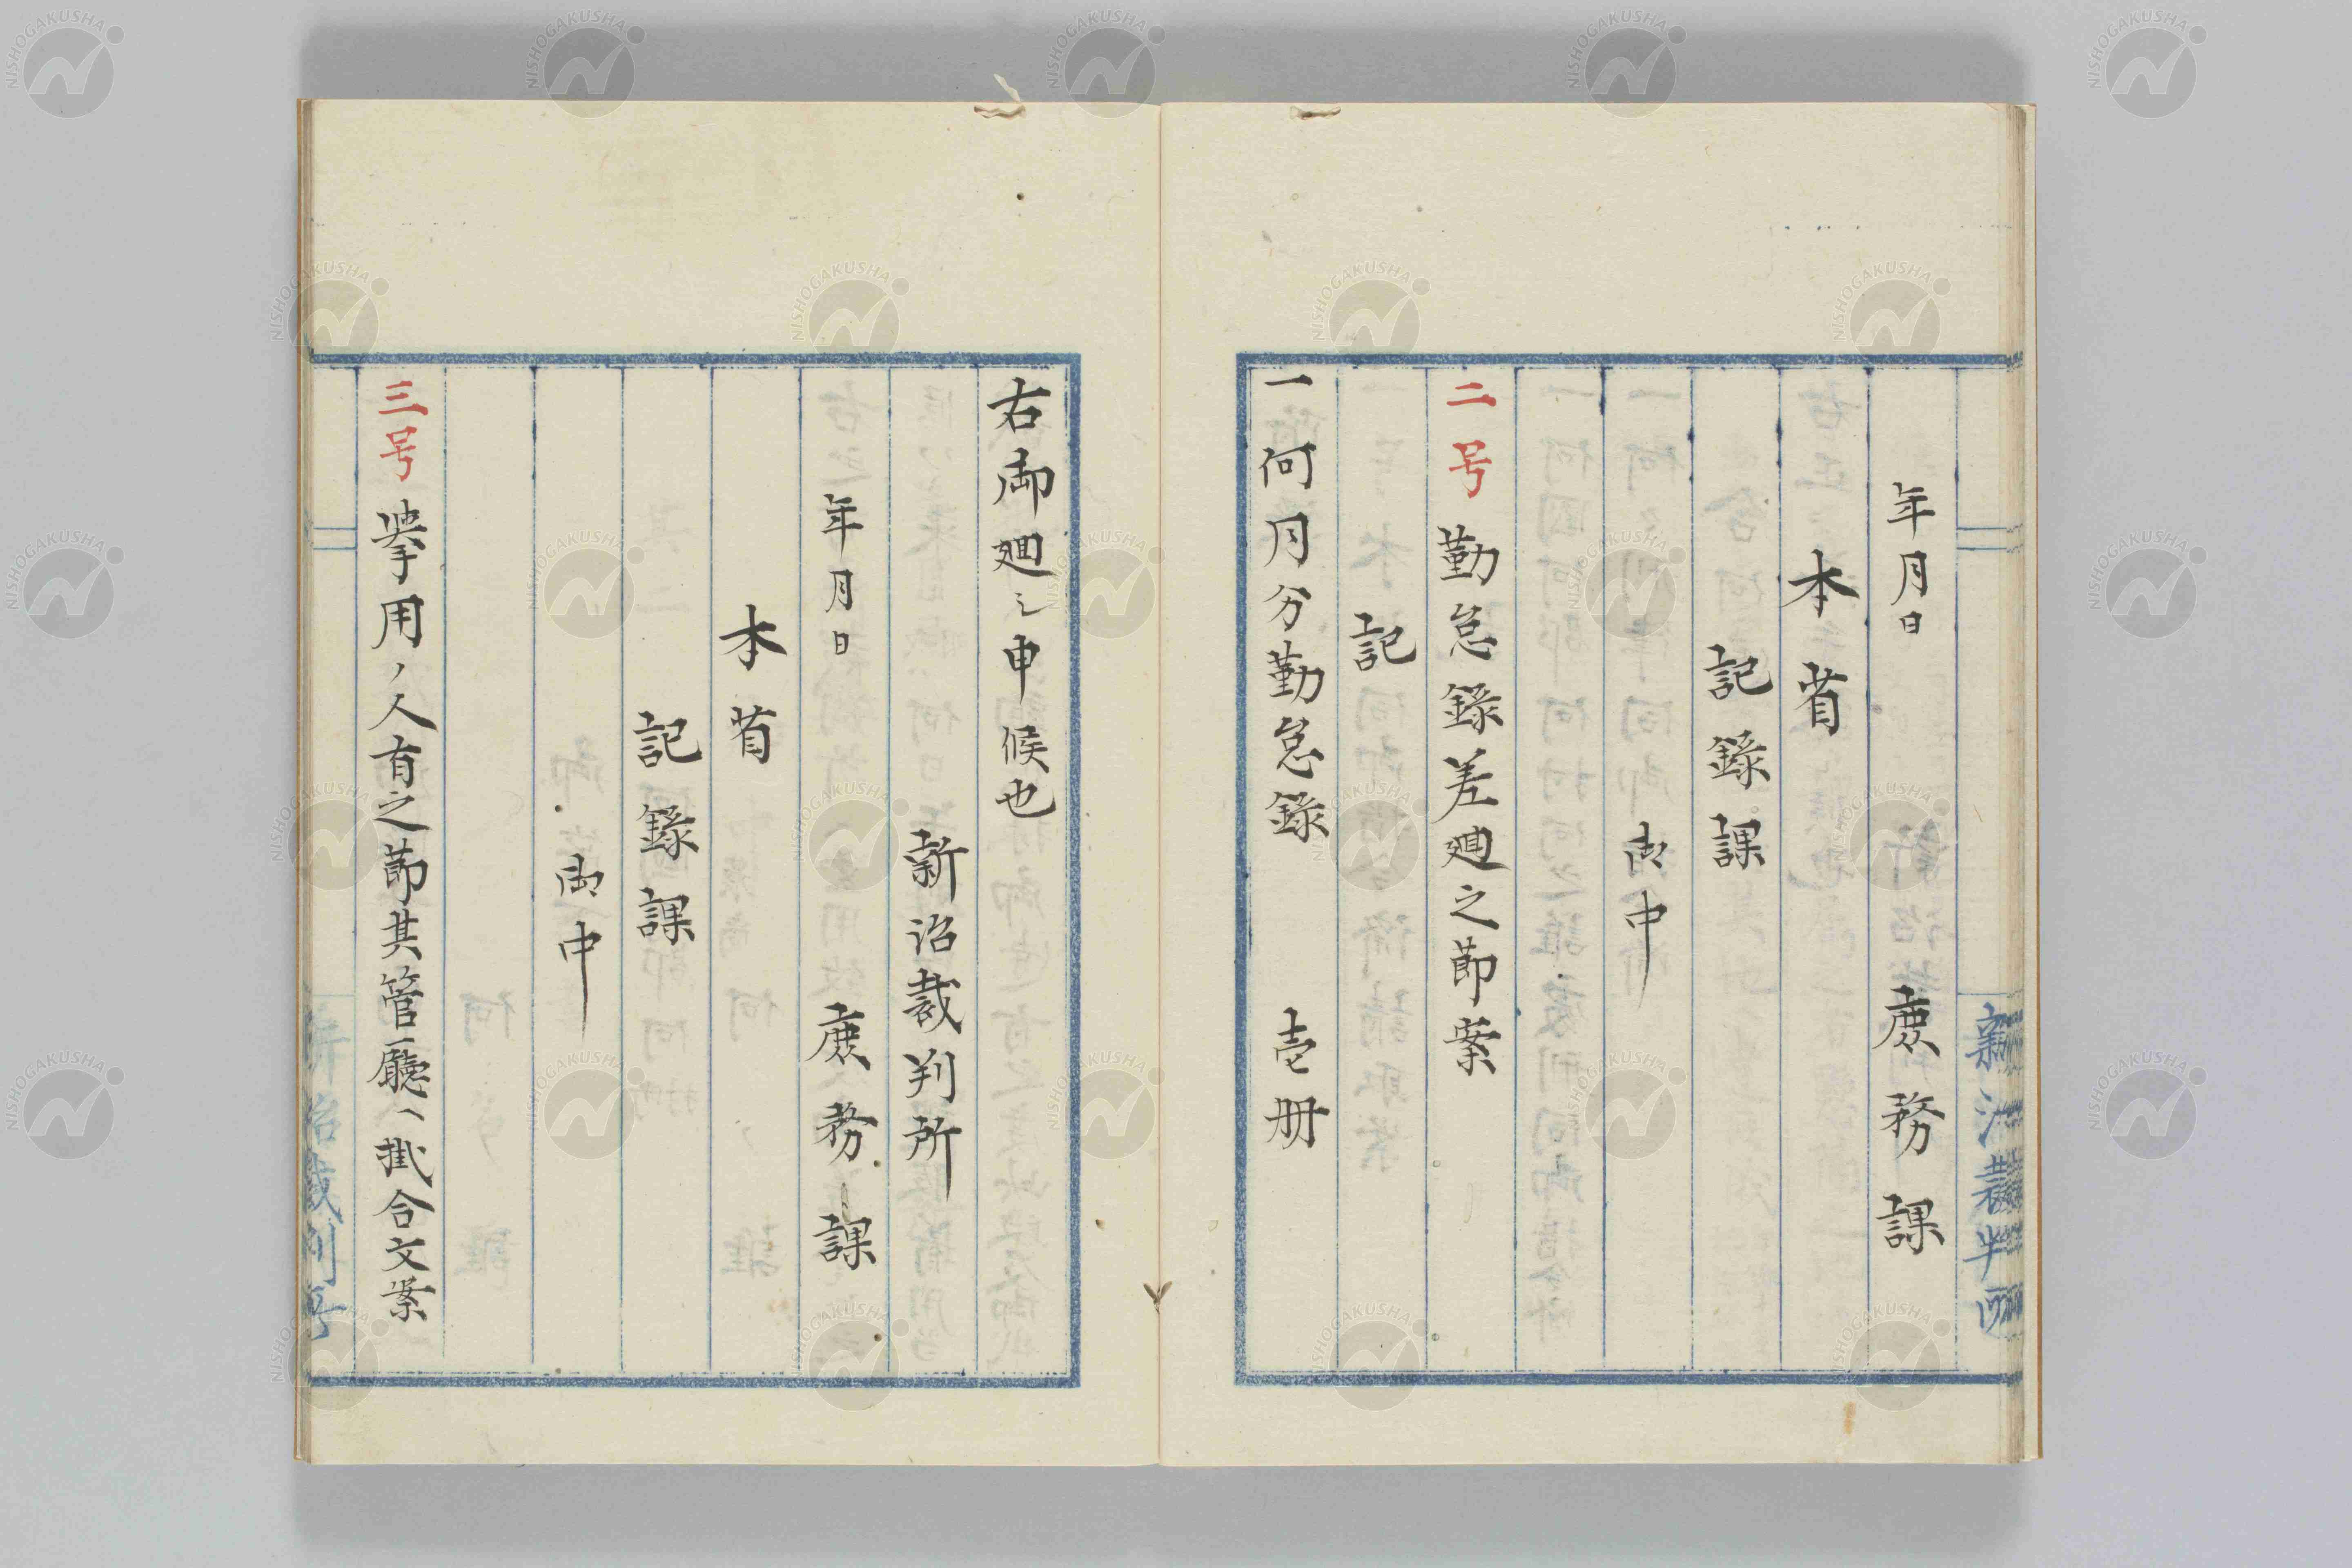 年月日　庶務課
本省
記錄課
御中
二号 勤怠錄差廻之節案
記
一何月分勤怠錄　壱冊
右御廻シ申候也
新治裁判所
年月日　庶務課
本省
記錄課
御中
三号 挙用ノ人有之節其管廳ヘ掛合文案
新治裁判所
NISHOGAKUSHA